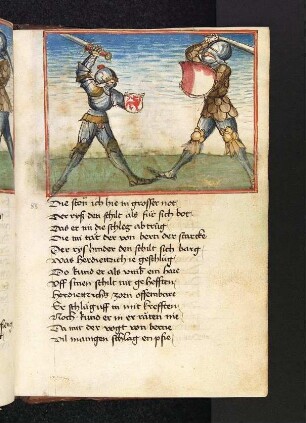 Die ston ich hie in grosser not
Der ryß den schilt als fur sich bot
Das er in die schleg ab trüg
Die im tät der von bern der starcke
Der ryß hinder den schilt sich barg
Was her dietterich ie geschlüg
Do kund er als umb ein har
Uff sinen schilt nit gehefften
Her dietterichs zorn offenbare
Er schlüg uff in mit krefften
Noch kund er in er nit
Da mit der vogt von berne
Vil mangen schlag en pfie